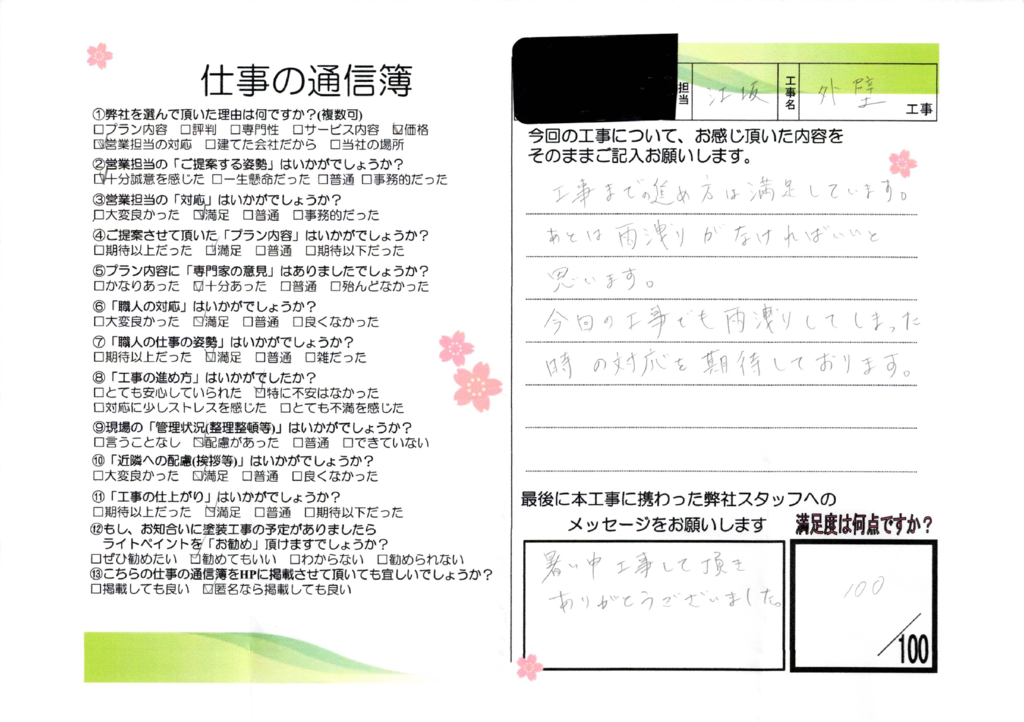 仕事の通信簿
①弊社を選んで頂いた理由は何ですか?(複数可)
□プラン内容 □評判 □専門性 □サービス内容 ☑価格
☑営業担当の対応 □建てた会社だから □当社の場所
②営業担当の「ご提案する姿勢」はいかがでしょうか?
☑十分誠意を感じた □一生懸命だった □普通 □事務的だった
③営業担当の「対応」はいかがでしょうか?
□大変良かった ☑満足 □普通 □事務的だった
④ご提案させて頂いた「プラン内容」はいかがでしょうか?
□期待以上だった ☑満足 □普通 □期待以下だった
⑤プラン内容に「専門家の意見」はありましたでしょうか?
□かなりあった ☑十分あった □普通 □殆んどなかった
⑥「職人の対応」はいかがでしょうか?
□大変良かった ☑満足 □普通 □良くなかった
⑦「職人の仕事の姿勢」はいかがでしょうか?
□期待以上だった ☑満足 □普通 □雑だった
⑧「工事の進め方」はいかがでしたか?
□とても安心していられた ☑特に不安はなかった
□対応に少しストレスを感じた □とても不満を感じた
⑨現場の「管理状況(整理整頓等)」はいかがでしょうか?
□言うことなし ☑配慮があった □普通 □できていない
⑩「近隣への配慮(挨拶等)」はいかがでしょうか?
□大変良かった ☑満足 □普通 □良くなかった
⑪「工事の仕上がり」はいかがでしょうか?
□期待以上だった ☑満足 □普通 □期待以下だった
⑫もし、お知合いに塗装工事の予定がありましたら
ライトペイントを「お勧め」頂けますでしょうか?
□ぜひ勧めたい ☑勧めてもいい □わからない □勧められない
⑬こちらの仕事の通信簿をHPに掲載させて頂いても宜しいでしょうか?
□掲載しても良い ☑匿名なら掲載しても良い
担当 江坂 工事名 外壁 工事
今回の工事について、お感じ頂いた内容を
そのままご記入お願いします。
工事までの進め方は満足しています。
あとは雨洩りがなければいいと
思います。
今回の工事でも雨洩りしてしまった
時の対応を期待しております。
最後に本工事に携わった弊社スタッフへの
メッセージをお願いします
暑い中工事して頂き
ありがとうございました。
満足度は何点ですか?
100
/100